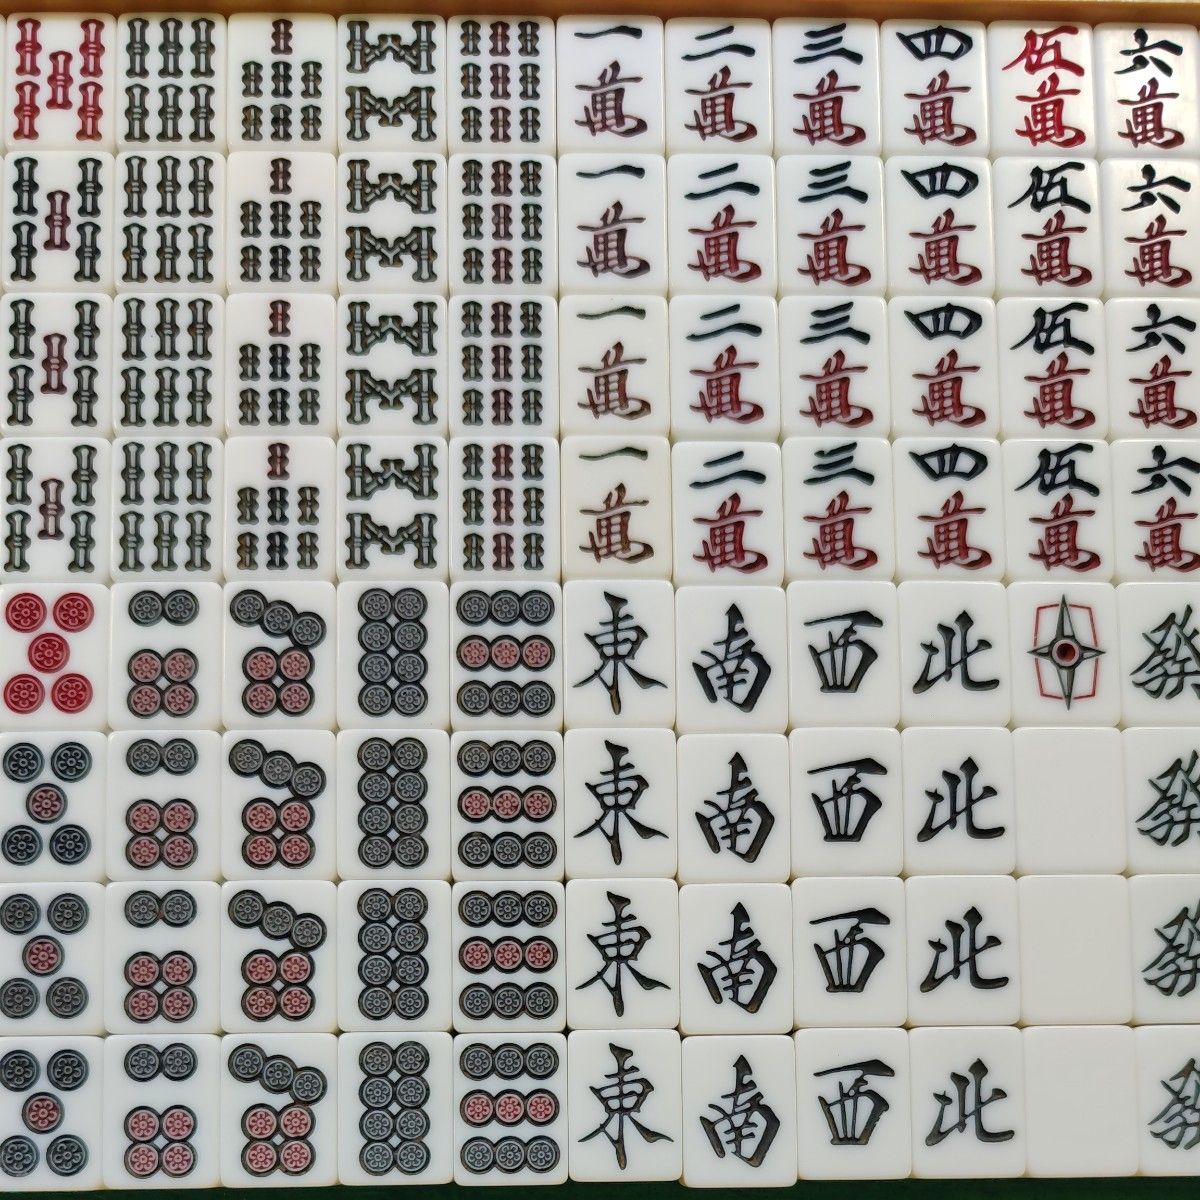 一萬 二萬 三萬 四萬 伍萬 六萬
一萬 二萬 三萬 四萬 伍萬 六萬
一萬 二萬 三萬 四萬 伍萬 六萬
一萬 二萬 三萬 四萬 伍萬 六萬
東 南 西 北 發
東 南 西 北 發
東 南 西 北 發
東 南 西 北 發